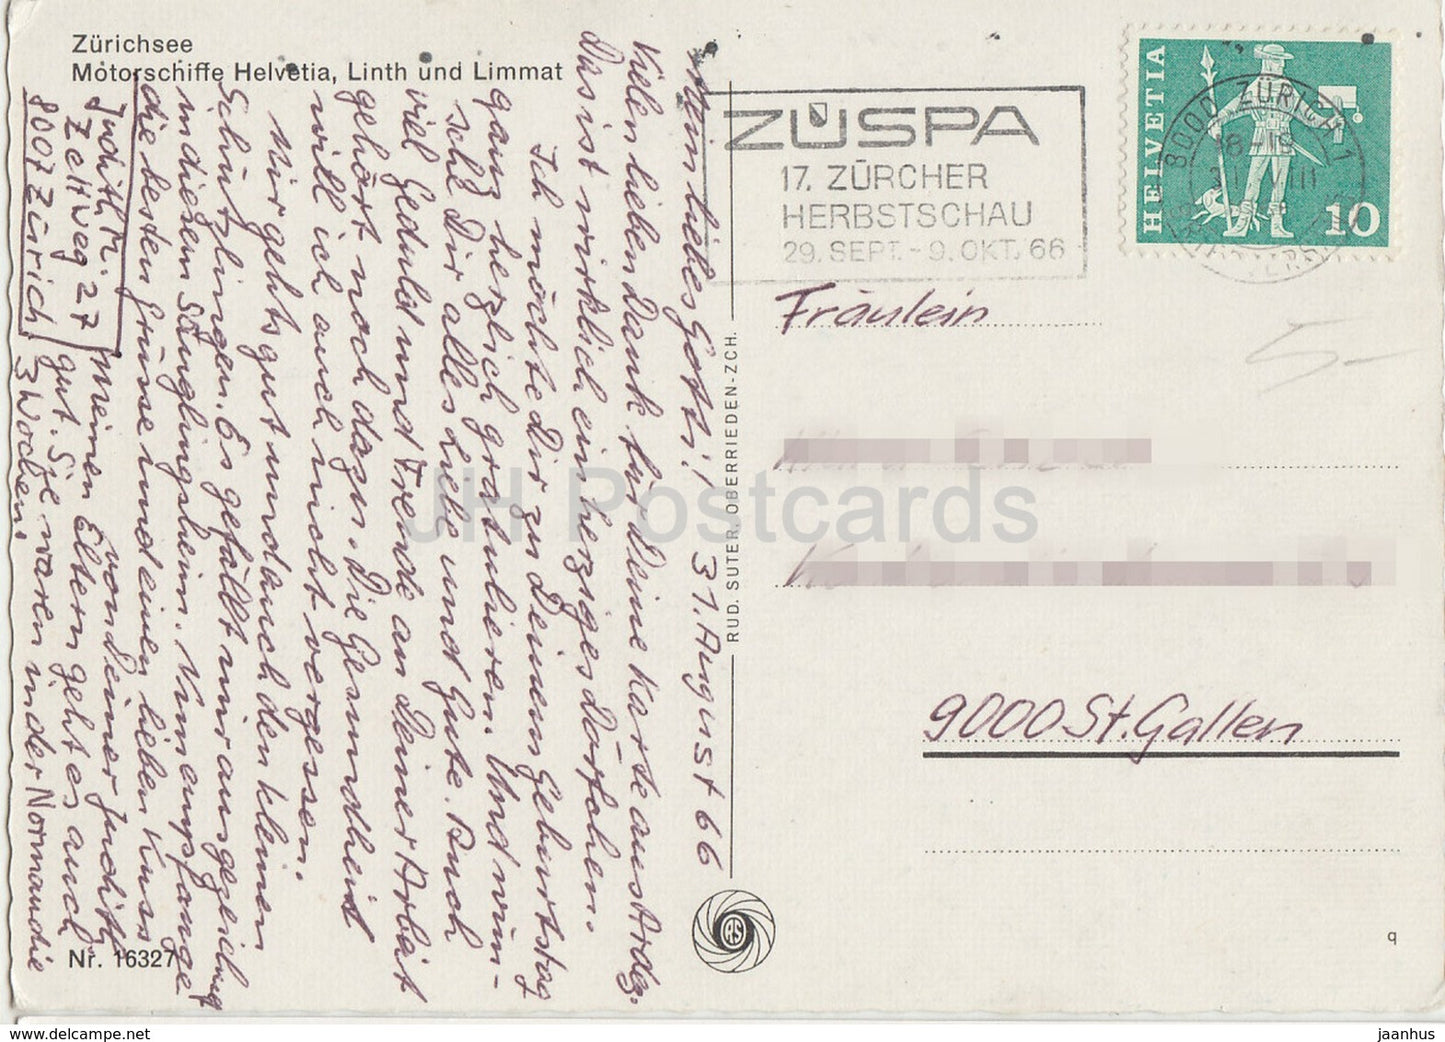 Zürichsee
Motorschiffe Helvetia, Linth und Limmat
Mein liebes Gotti! 31. August 66
Vielen lieben Dank für Deine Karte aus Ardez.
Das ist wirklich ein herziges Dörfchen.
Ich möchte Dir zu Deinem Geburtstag
ganz herzlich gratulieren. Und wün-
sche Dir alles Liebe und Gute. Auch
viel Geduld und Freude an Deiner Arbeit
gehört noch dazu. Die Gesundheit
will ich auch nicht vergessen.
Mir gehts gut und auch den kleinen
Schützlingen. Es gefällt mir ausgezeichnet
in diesem Säuglingsheim. Nun empfange
die besten Grüsse und einen lieben Kuss
von Deiner Judith
Meinen Eltern geht es auch
gut. Sie waren in der Normandie
3 Wochen!
Judith M.
Zeltweg 27
8007 Zürich
Nr. 16327
RUD. SUTER, OBERRIEDEN-ZCH.
RS
ZÜSPA
17. ZÜRCHER
HERBSTSCHAU
29. SEPT. - 9. OKT. 66
8000 ZÜRICH 1
18-19
31. VIII
HELVETIA
10
Fräulein
9000 St. Gallen
q
JH Postcards
https://www.delcampe.net
jaanhus